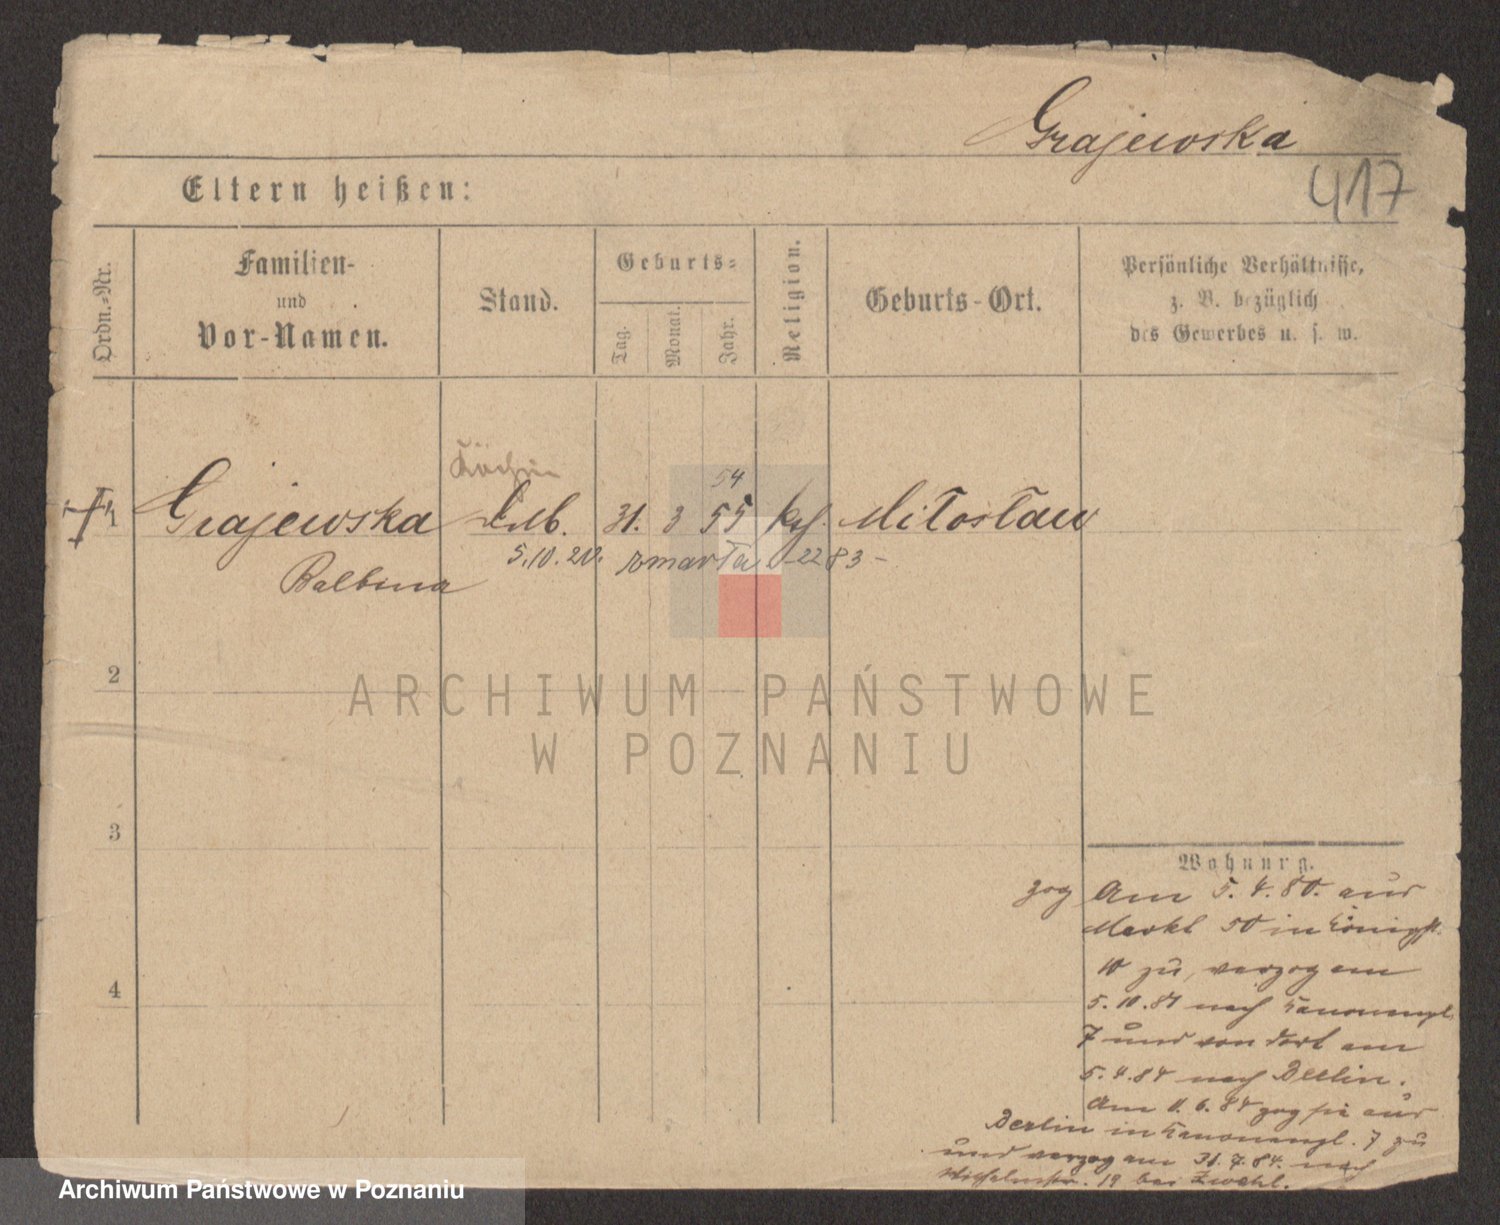 Grajewska
417
Eltern heißen:
Ordn.-Nr.
Familien-
und
Vor-Namen.
Stand.
Geburts-
Tag.
Monat.
Jahr.
Religion.
Geburts-Ort.
Persönliche Verhältnisse,
z. B. bezüglich
des Gewerbes u. s. w.
Köchin
54
Grajewska 31. 3 55 Miłosław
5.10.20. zmarła
Balbina
2
ARCHIWUM PAŃSTWOWE
W POZNANIU
3
Wohnung.
zog Am 5.4.80. aus
Markt 50 in Königstr.
10 zu, verzog am
5.10.81 nach Kanonenpl.
7 und von dort am
4
5.4.84 nach Berlin.
Am 11.6.84 zog sie aus
Berlin in Kanonenpl. 7 zu
und verzog am 31.7.84. nach
Wilhelmstr. 19 bei
Archiwum Państwowe w Poznaniu